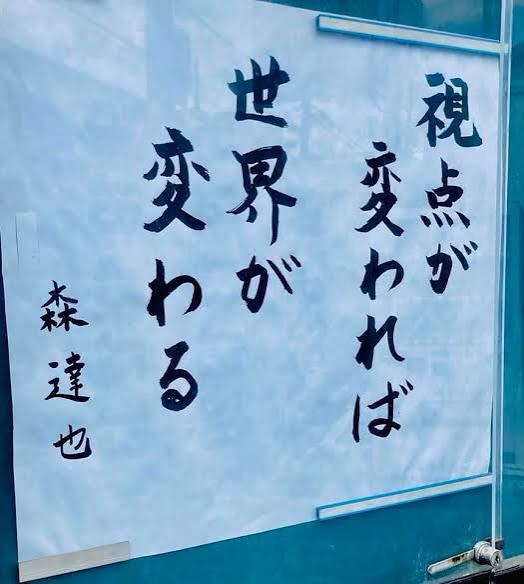 視点が
変われば
世界が
変わる
森達也